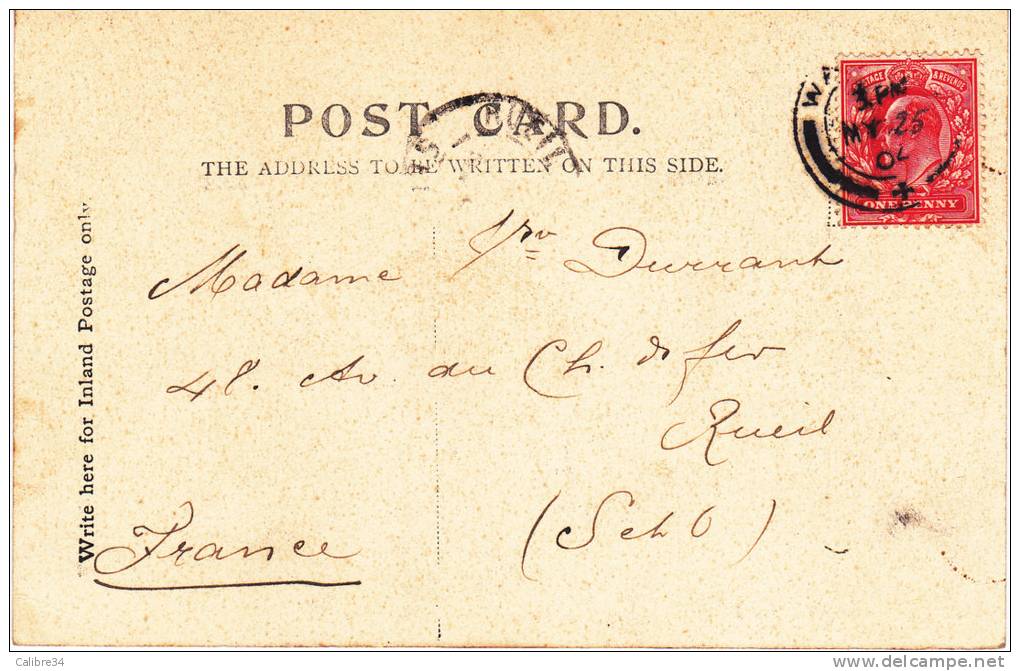 POST CARD.
THE ADDRESS TO BE WRITTEN ON THIS SIDE.
POSTAGE & REVENUE
3.PM
MY 25
04
ONE PENNY
RUEIL
Write here for Inland Postage only.
Madame Durrant
48. Av. du Ch. de fer
Rueil
(S et O)
France
Calibre34
www.delcampe.net